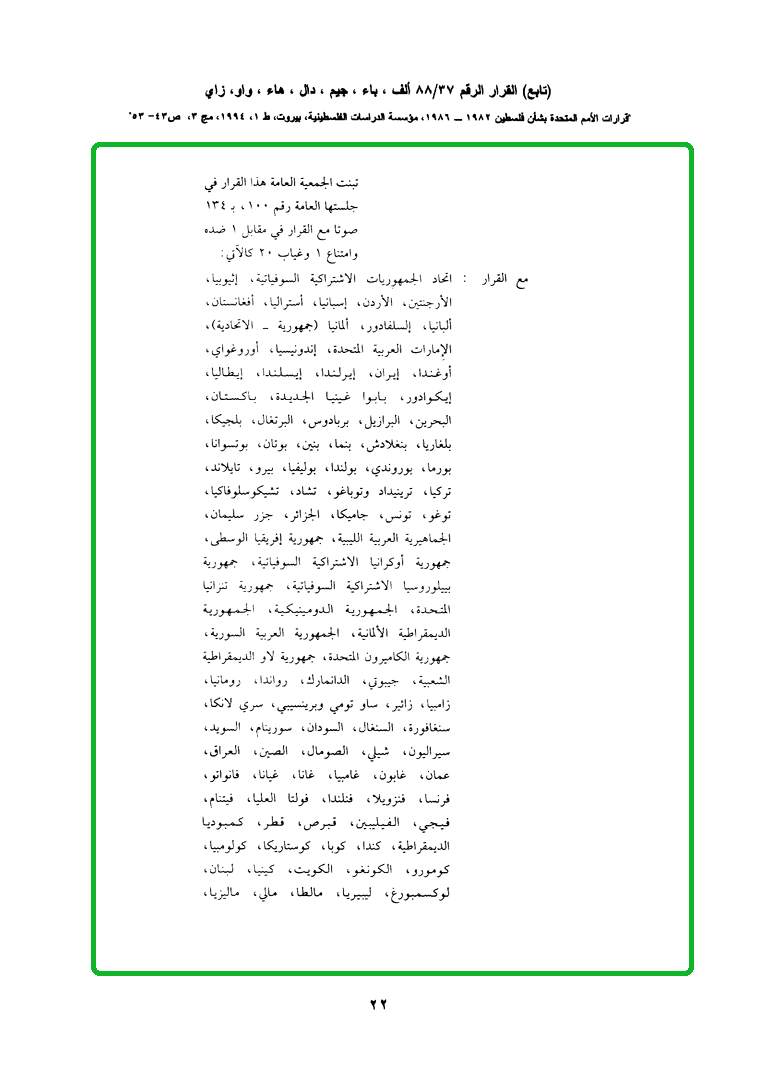 (تابع) القرار الرقم ٨٨/٣٧ ألف ، باء ، جيم ، دال ، هاء ، واو، زاي
"قرارات الأمم المتحدة بشأن فلسطين ١٩٨٢ ــ ١٩٨٦، مؤسسة الدراسات الفلسطينية، بيروت، ط ١، ١٩٩٤، مج ٣، ص٤٣- ٥٣"
تبنت الجمعية العامة هذا القرار في
جلستها العامة رقم ١٠٠، بـ ١٣٤
صوتا مع القرار في مقابل ١ ضده
وامتناع ١ وغياب ٢٠ كالآتي:
مع القرار : اتحاد الجمهوريات الاشتراكية السوفياتية، إثيوبيا،
الأرجنتين، الأردن، إسبانيا، أستراليا، أفغانستان،
ألبانيا، إلسلفادور، ألمانيا (جمهورية ــ الاتحادية)،
الإمارات العربية المتحدة، إندونيسيا، أوروغواي،
أوغندا، إيران، إيرلندا، إيسلندا، إيطاليا،
إيكوادور، بابوا غينيا الجديدة، باكستان،
البحرين، البرازيل، بربادوس، البرتغال، بلجيكا،
بلغاريا، بنغلادش، بنما، بنين، بوتان، بوتسوانا،
بورما، بوروندي، بولندا، بوليفيا، بيرو، تايلاند،
تركيا، ترينيداد وتوباغو، تشاد، تشيكوسلوفاكيا،
توغو، تونس، جاميكا، الجزائر، جزر سليمان،
الجماهيرية العربية الليبية، جمهورية إفريقيا الوسطى،
جمهورية أوكرانيا الاشتراكية السوفياتية، جمهورية
بييلوروسيا الاشتراكية السوفياتية، جمهورية تنزانيا
المتحدة، الجمهورية الدومينيكية، الجمهورية
الديمقراطية الألمانية، الجمهورية العربية السورية،
جمهورية الكاميرون المتحدة، جمهورية لاو الديمقراطية
الشعبية، جيبوتي، الدانمارك، رواندا، رومانيا،
زامبيا، زائير، ساو تومي وبرينسيبي، سري لانكا،
سنغافورة، السنغال، السودان، سورينام، السويد،
سيراليون، شيلي، الصومال، الصين، العراق،
عمان، غابون، غامبيا، غانا، غيانا، فانواتو،
فرنسا، فنزويلا، فنلندا، فولتا العليا، فيتنام،
فيجي، الفيليبين، قبرص، قطر، كمبوديا
الديمقراطية، كندا، كوبا، كوستاريكا، كولومبيا،
كومورو، الكونغو، الكويت، كينيا، لبنان،
لوكسمبورغ، ليبيريا، مالطا، مالي، ماليزيا،
٢٢